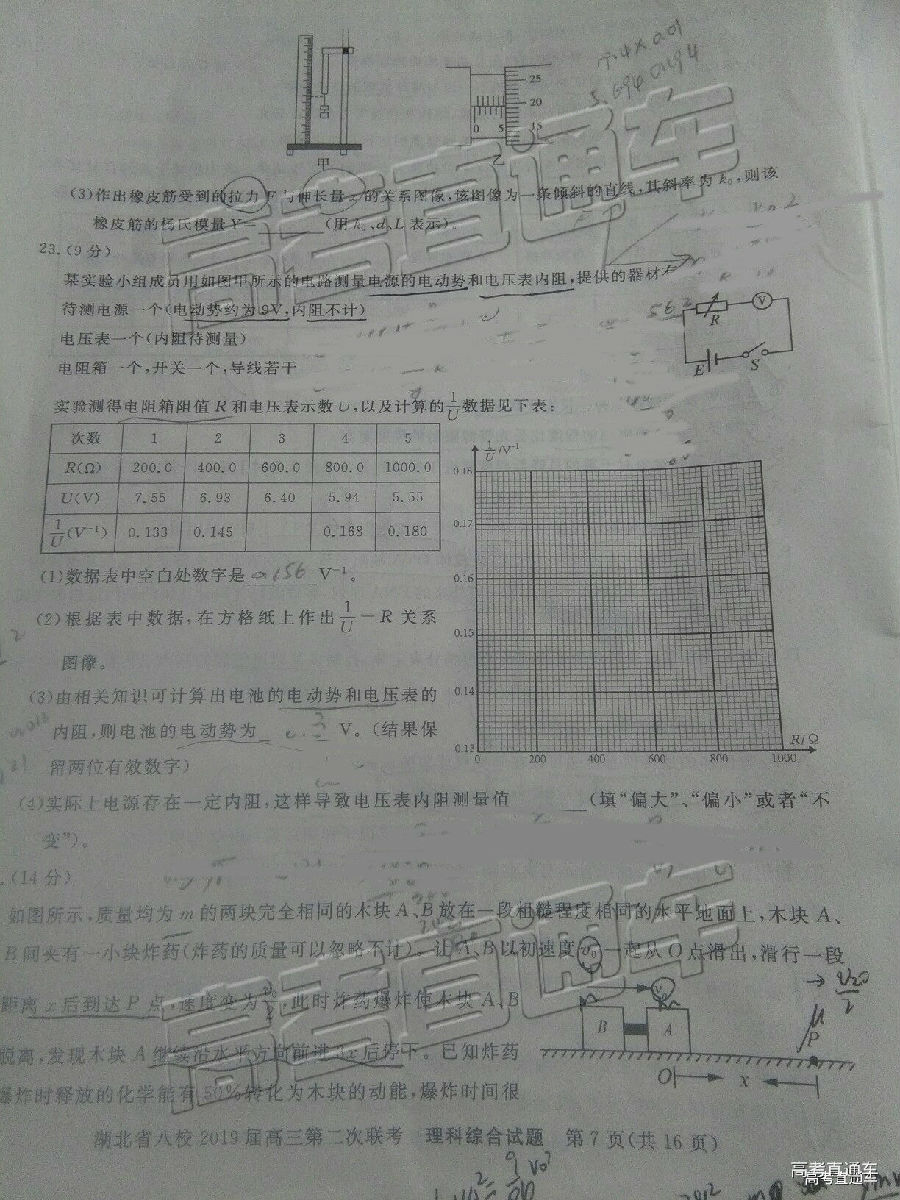 25
20
15
0 5
甲
乙
7.4×0.01
(3)作出橡皮筋受到的拉力F与伸长量x的关系图像,该图像为一条倾斜的直线,其斜率为k₀,则该
橡皮筋的杨氏模量Y= (用k₀、d、L表示)。
23.(9分)
某实验小组成员用如图甲所示的电路测量电源的电动势和电压表内阻,提供的器材
待测电源一个(电动势约为9V,内阻不计)
电压表一个(内阻待测量)
电阻箱一个,开关一个,导线若干
R V
E S
实验测得电阻箱阻值R和电压表示数U,以及计算的1/U数据见下表:
次数 1 2 3 4 5
R(Ω) 200.0 400.0 600.0 800.0 1000.0
U(V) 7.55 6.93 6.40 5.94 5.55
1/U(V⁻¹) 0.133 0.145 0.168 0.180
1/U/V⁻¹
0.18
0.17
0.16
0.15
0.14
0.13
0 200 400 600 800 1000
R/Ω
(1)数据表中空白处数字是 0.156 V⁻¹。
(2)根据表中数据,在方格纸上作出1/U-R关系
图像。
(3)由相关知识可计算出电池的电动势和电压表的
内阻,则电池的电动势为 V。(结果保
留两位有效数字)
(4)实际上电源存在一定内阻,这样导致电压表内阻测量值 (填“偏大”、“偏小”或者“不
变”)。
.(14分)
如图所示,质量均为m的两块完全相同的木块A、B放在一段粗糙程度相同的水平地面上,木块A、
B间夹有一小块炸药(炸药的质量可以忽略不计)。让A、B以初速度v₀一起从O点滑出,滑行一段
距离x后到达P点,速度变为v₀/2,此时炸药爆炸使木块A、B
脱离,发现木块A继续沿水平方向前进3x后停下。已知炸药
爆炸时释放的化学能有50%转化为木块的动能,爆炸时间很
B A
O x P
湖北省八校2019届高三第二次联考 理科综合试题 第7页(共16页)
高考直通车
高考直通车
高考直通车
高考直通车